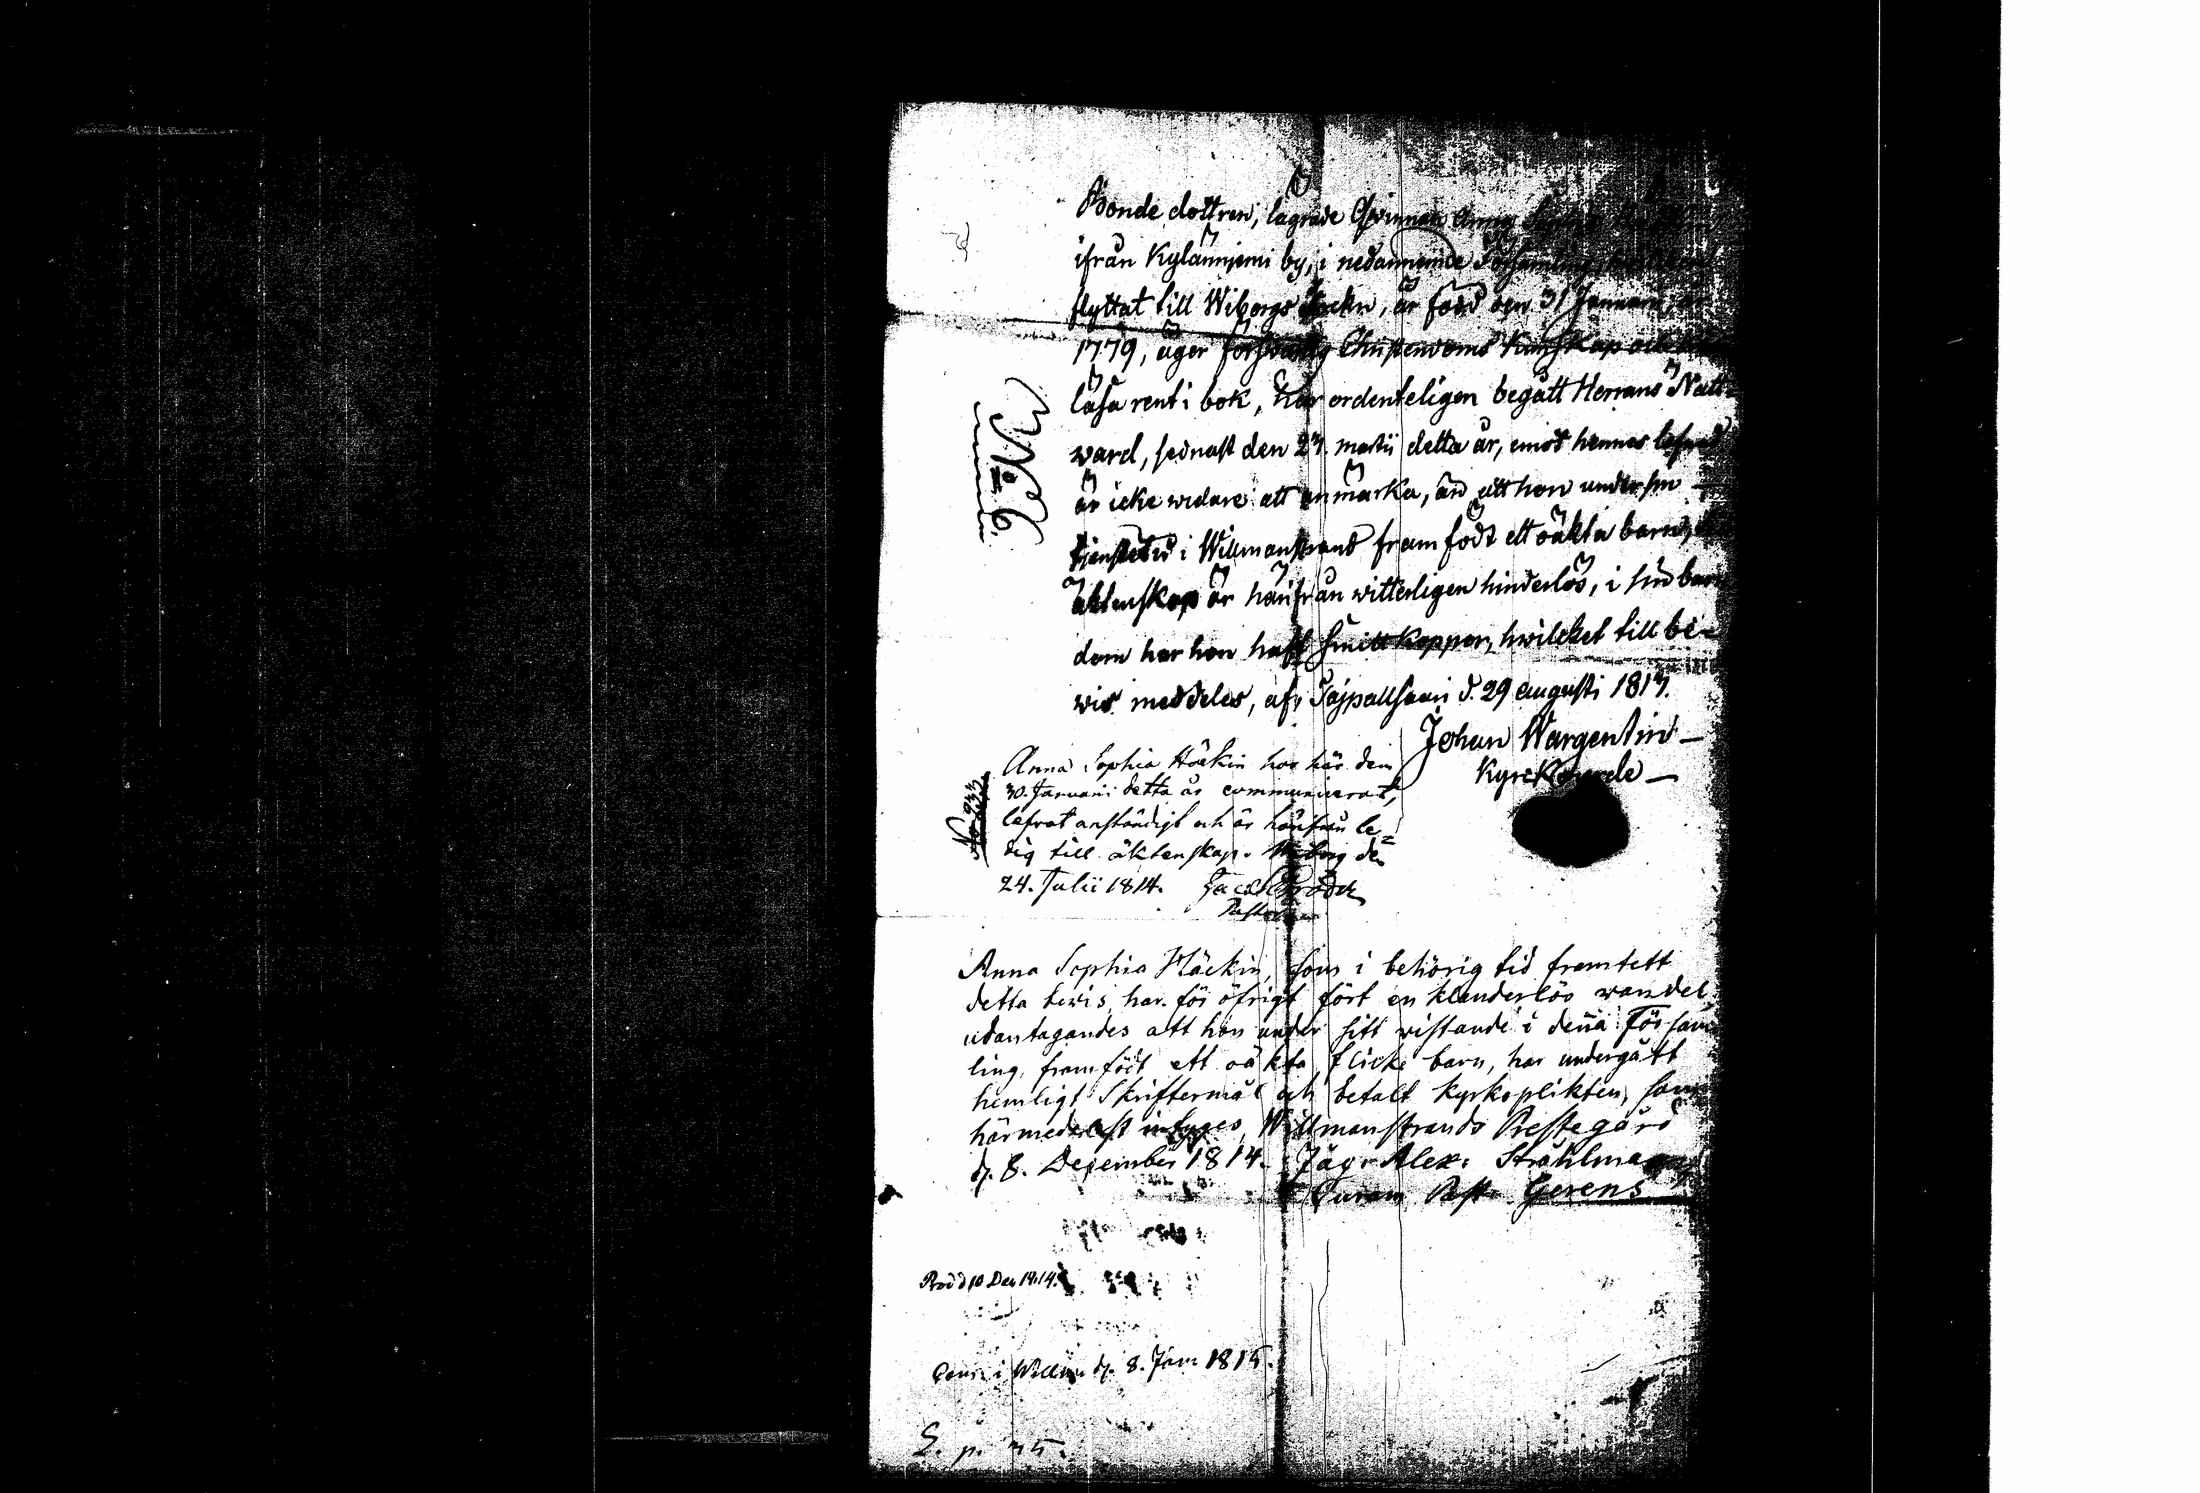 Bonde dottren, lägrade Qwinnan Anna
ifrån Kylänniemi by, i nedannemde Församling
flyttat till Wiborgs Sockn, är född den 31 Januari
1779, äger försvarlig Christendoms Kunskap och
läsa rent i bok, har ordenteligen begått Herrans Natt-
ward, sednast den 23. martii detta år, emot hennes lefnad
är icke widare att anmärka, än att hon under sin
tjenstetid i Willmanstrand framfödt ett oäkta barn,
äktenskap är härifrån witterligen hinderlös, i sin barn
dom har hon haft Smittkoppor, hwilcket till be-
wis meddeles, af Tajpallsaari d. 29 augusti 1813.
Johan Wargentin
Kyrkoherde
Anna Sophia Häckin har här den
30. Januarii detta år communicerat,
lefvat anständigt och är härifrån le=
dig till äktenskap. Wiborg den
24. Julii 1814.
Anna Sophia Häckin, som i behörig tid framtett
detta bewis, har för öfrigt fört en klanderlös wandel,
udantagandes att hon under sitt wistande i denna Försam
ling, framfödt ett oäkta flicke barn, har undergått
hemligt Skriftermål och betalt kyrkoplikten, som
härmedelst intyges, Willmanstrands Prestegård
d. 8. December 1814. Jäg. Alex. Stråhlman
Curam Past. Gerens
Prod d 10 Dec 1814.
i Willm. d. 8. Jan: 1815.